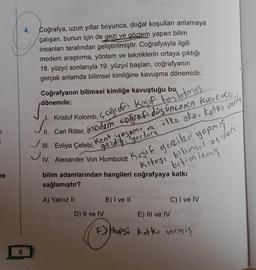 4. Coğrafya, uzun yıllar boyunca, doğal koşulları anlamaya
çalışan, bunun için de gezi ve gözlem yapan bilim
insanları tarafından geliştirilmiştir. Coğrafyayla ilgili
modern araştırma, yöntem ve tekniklerin ortaya çıktığı
18. yüzyıl sonlarıyla 19. yüzyıl başları, coğrafyanın
gerçek anlamda bilimsel kimliğine kavuşma dönemidir.
Coğrafyanın bilimsel kimliğe kavuştuğu bu
dönemde;
I. Kristof Kolomb, coğrafi keşif başlatmış
II. Carl Ritter, modern coğrafi düşüncenin kurucusu
III. Evliya Çelebi,
IV. Alexander Von Humboldt keşif gezileri yapmış
bilimsel açıdan
bilim adamlarından hangileri coğrafyaya katkı
sağlamıştır?
A) Yalnız II B) I ve II C) I ve IV
D) II ve IV E) III ve IV
F) Hepsi katkı vermiş
8